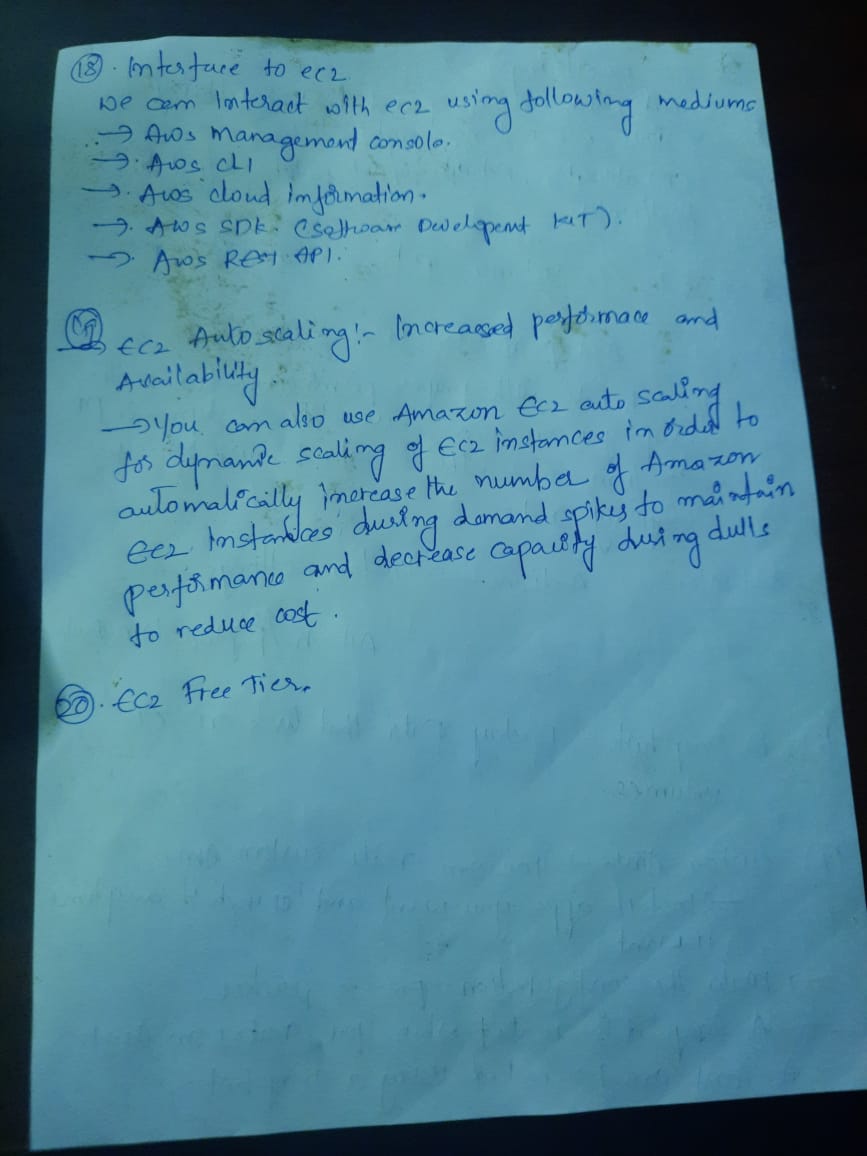 18. Interface to ec2
we can Interact with ec2 using following mediums
→ Aws management console.
→. Aws CLI
→. Aws cloud information.
→. AWS SDK. (Software Development KIT).
→. Aws REST API.
19 EC2 Auto scaling:- Increaesed performace and
Availability.
→ You can also use Amazon EC2 auto scaling
for dynamic scaling of EC2 instances in order to
automatically increase the number of Amazon
EC2 Instances during demand spikes to maintain
performance and decrease capacity during dulls
to reduce cost.
20. EC2 Free Tier.